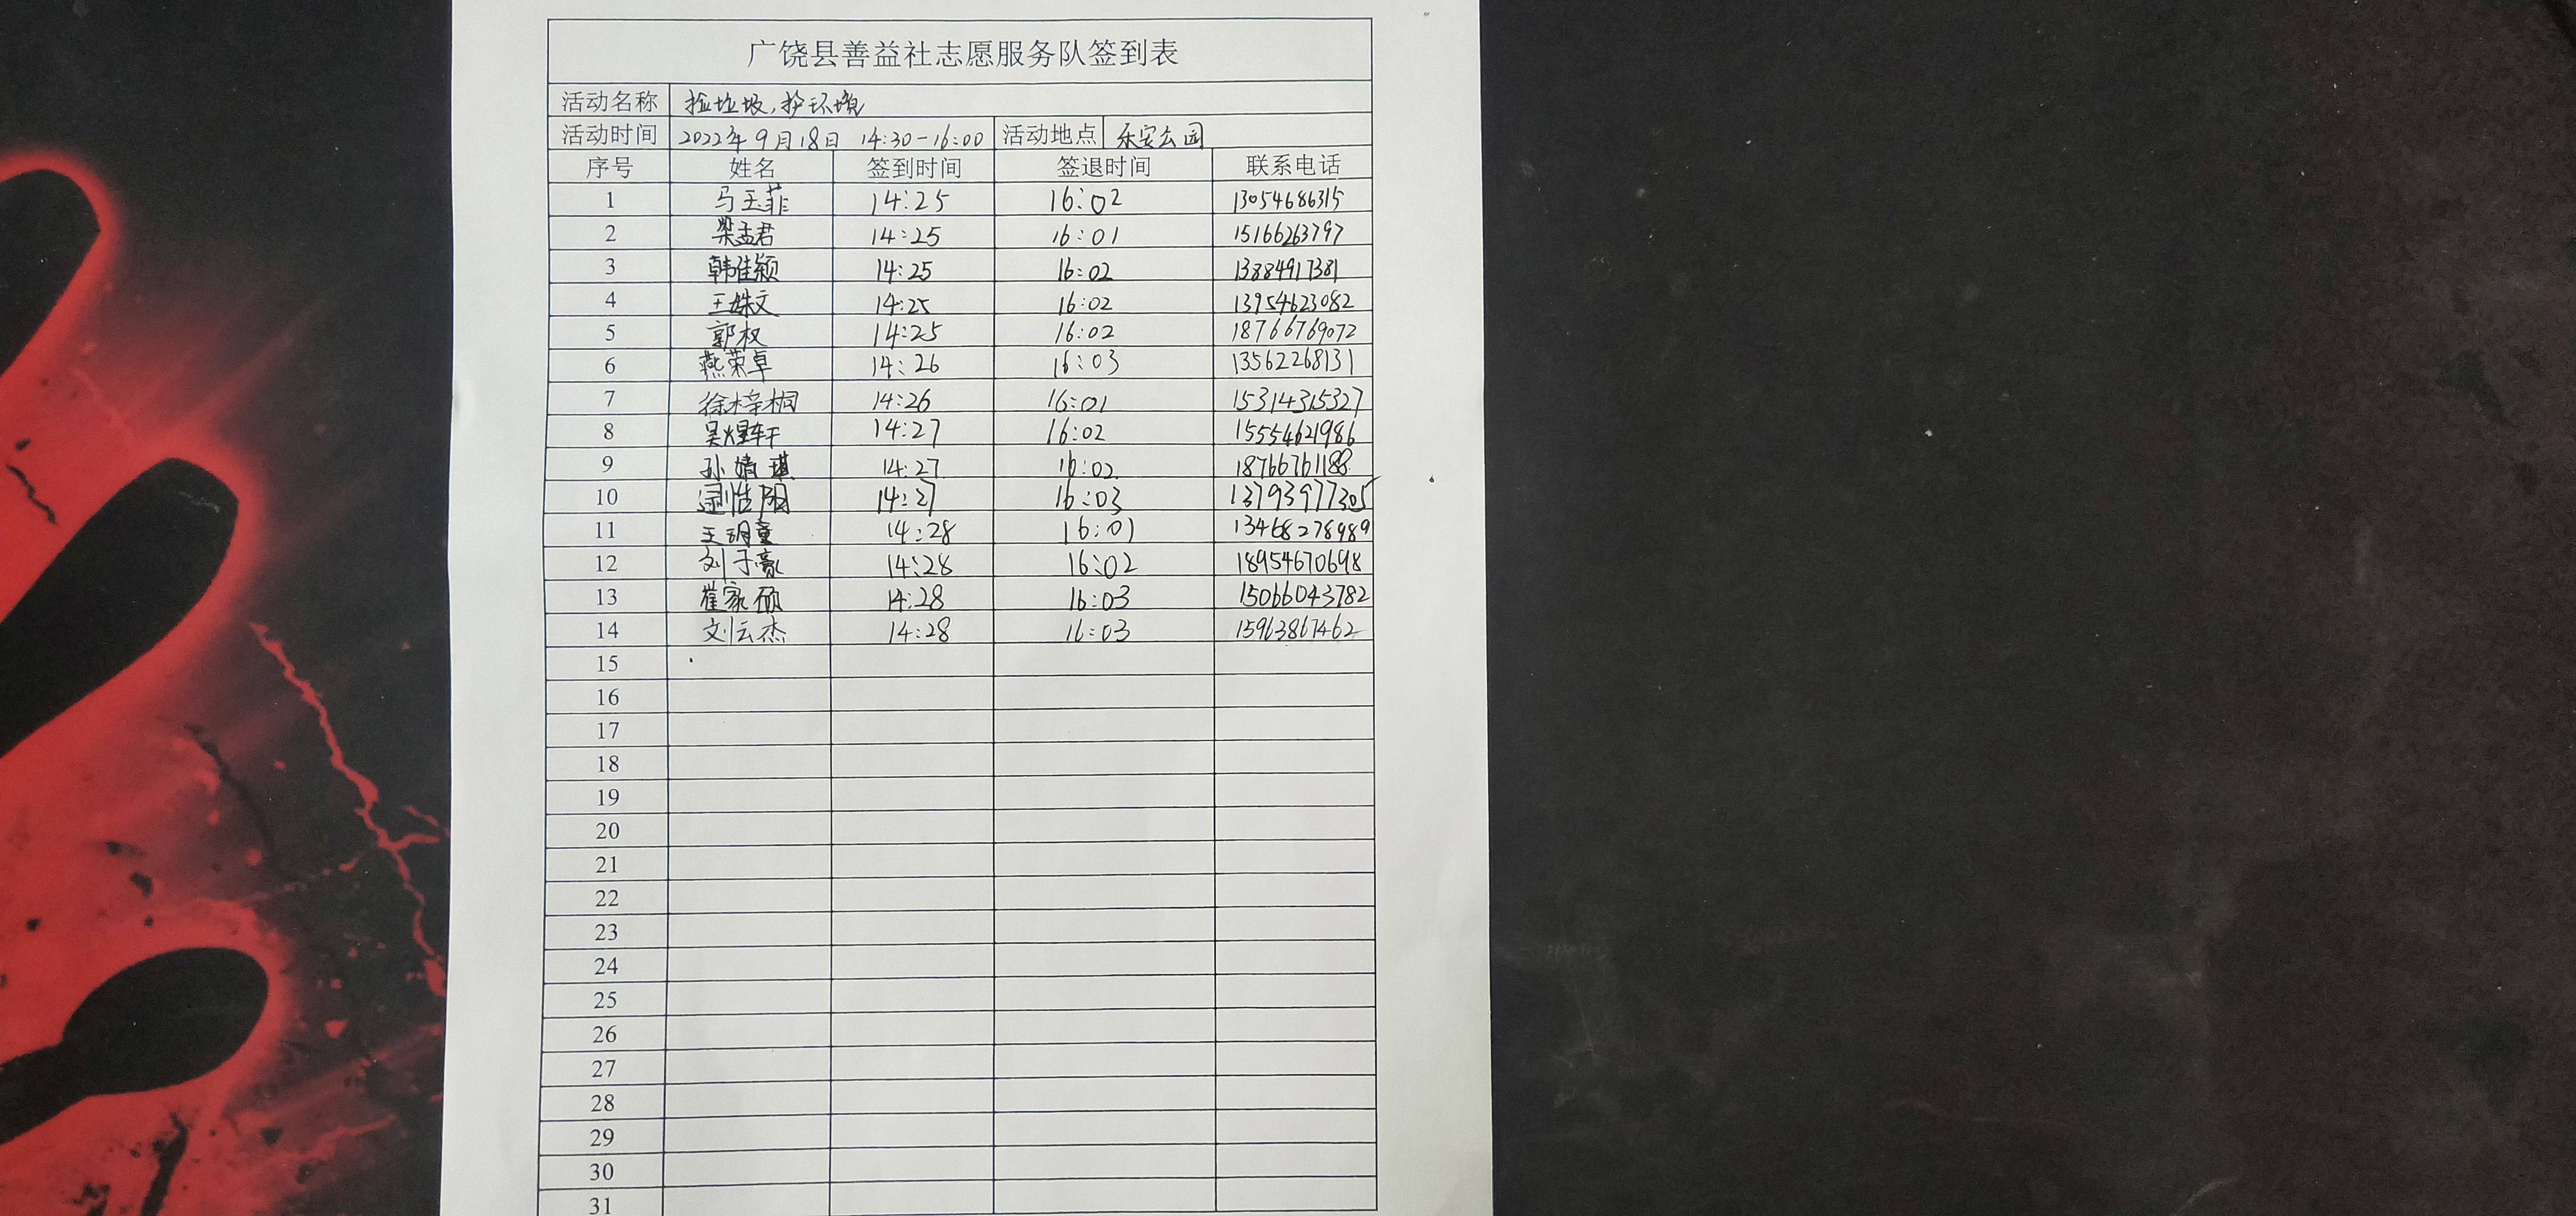 广饶县善益社志愿服务队签到表
活动名称 捡垃圾,护环境
活动时间 2022年9月18日 14:30-16:00 活动地点 乐安公园
序号 姓名 签到时间 签退时间 联系电话
1 马玉菲 14:25 16:02 13054686315
2 梁孟君 14:25 16:01 15166263797
3 韩佳颖 14:25 16:02 13884917381
4 王姝文 14:25 16:02 13954623082
5 郭权 14:25 16:02 18766769072
6 燕荣卓 14:26 16:03 13562268131
7 徐梓桐 14:26 16:01 15314315327
8 吴煜轩 14:27 16:02 15554621986
9 孙婧琪 14:27 16:02 18766761188
10 14:27 16:03 13793977305
11 王玥童 14:28 16:01 13468278989
12 刘子豪 14:28 16:02 18954670698
13 崔家硕 14:28 16:03 15066043782
14 刘云杰 14:28 16:03 15963867462
15
16
17
18
19
20
21
22
23
24
25
26
27
28
29
30
31